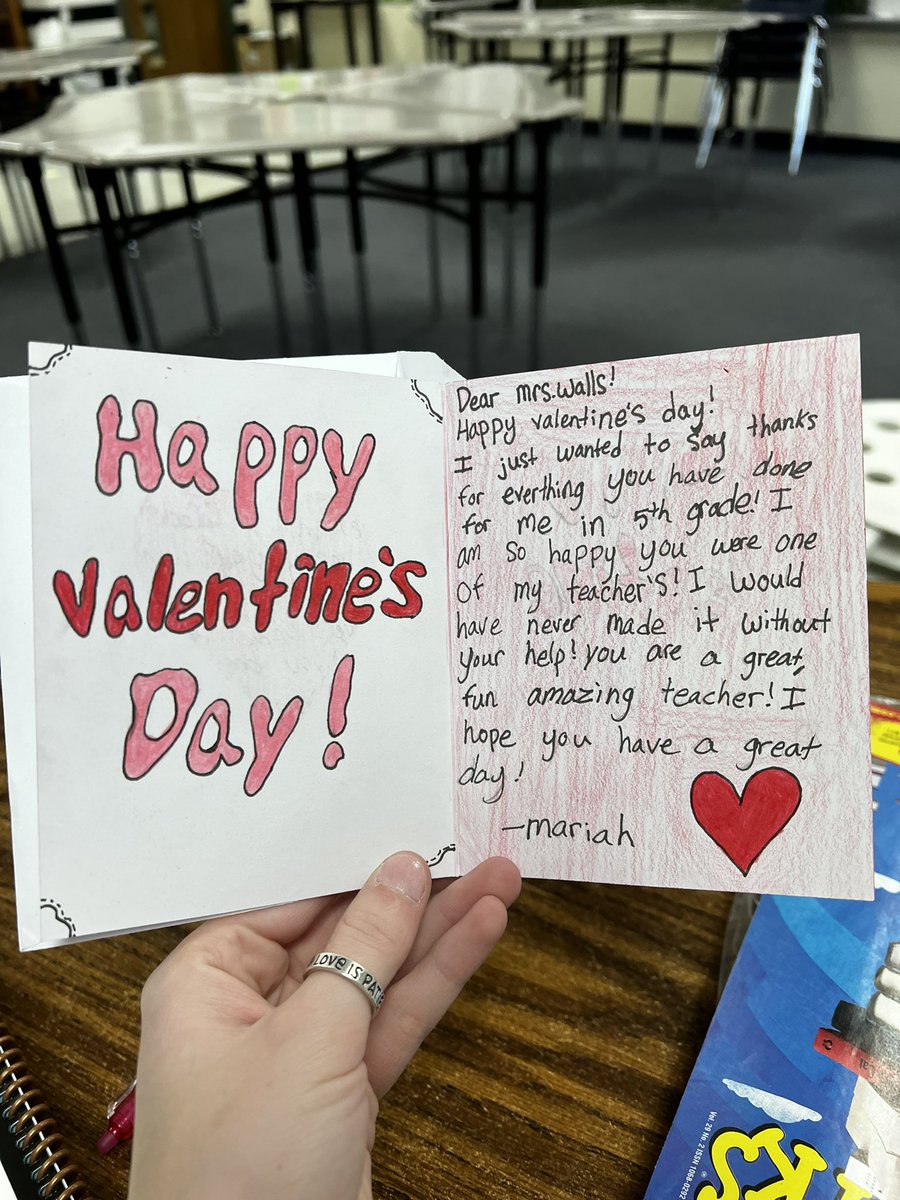 Happy
Valentine's
Day!
Dear mrs.walls!
Happy valentine's day!
I just wanted to say thanks
for everthing you have done
for me in 5th grade! I
am so happy you were one
of my teacher's! I would
have never made it without
your help! you are a great,
fun amazing teacher! I
hope you have a great
day!
—mariah
LOVE IS PATIE
Vol. 29 No. 2 ISSN 1068-0292